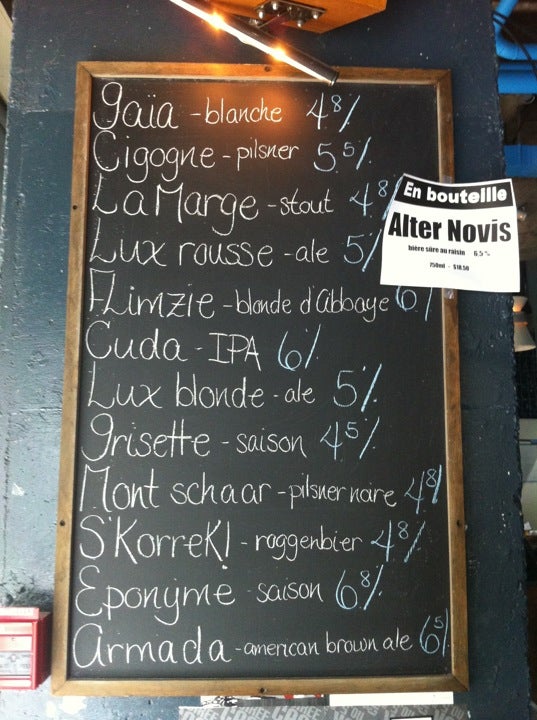 Gaïa - blanche 4⁸%
Cigogne - pilsner 5⁵%
La Marge - stout 4⁸%
Lux rousse - ale 5%
Flimzie - blonde d'Abbaye 6%
Cuda - IPA 6%
Lux blonde - ale 5%
Grisette - saison 4⁵%
Mont schaar - pilsner noire 4⁸%
S'KorreK! - roggenbier 4⁸%
Eponyme - saison 6⁸%
Armada - american brown ale 6⁵%
En bouteille
Alter Novis
bière sûre au raisin 6,5 %
750ml - $18.50